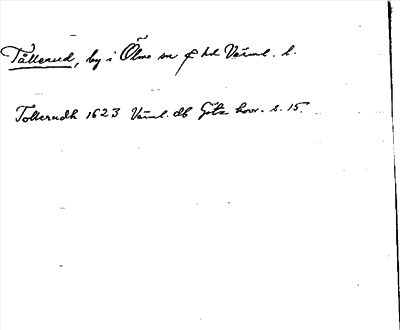 Tållerud, by i Ölme sn o hd Värml. l.
Tollerudh 1623 Värml. db Göta hovr. s. 15.